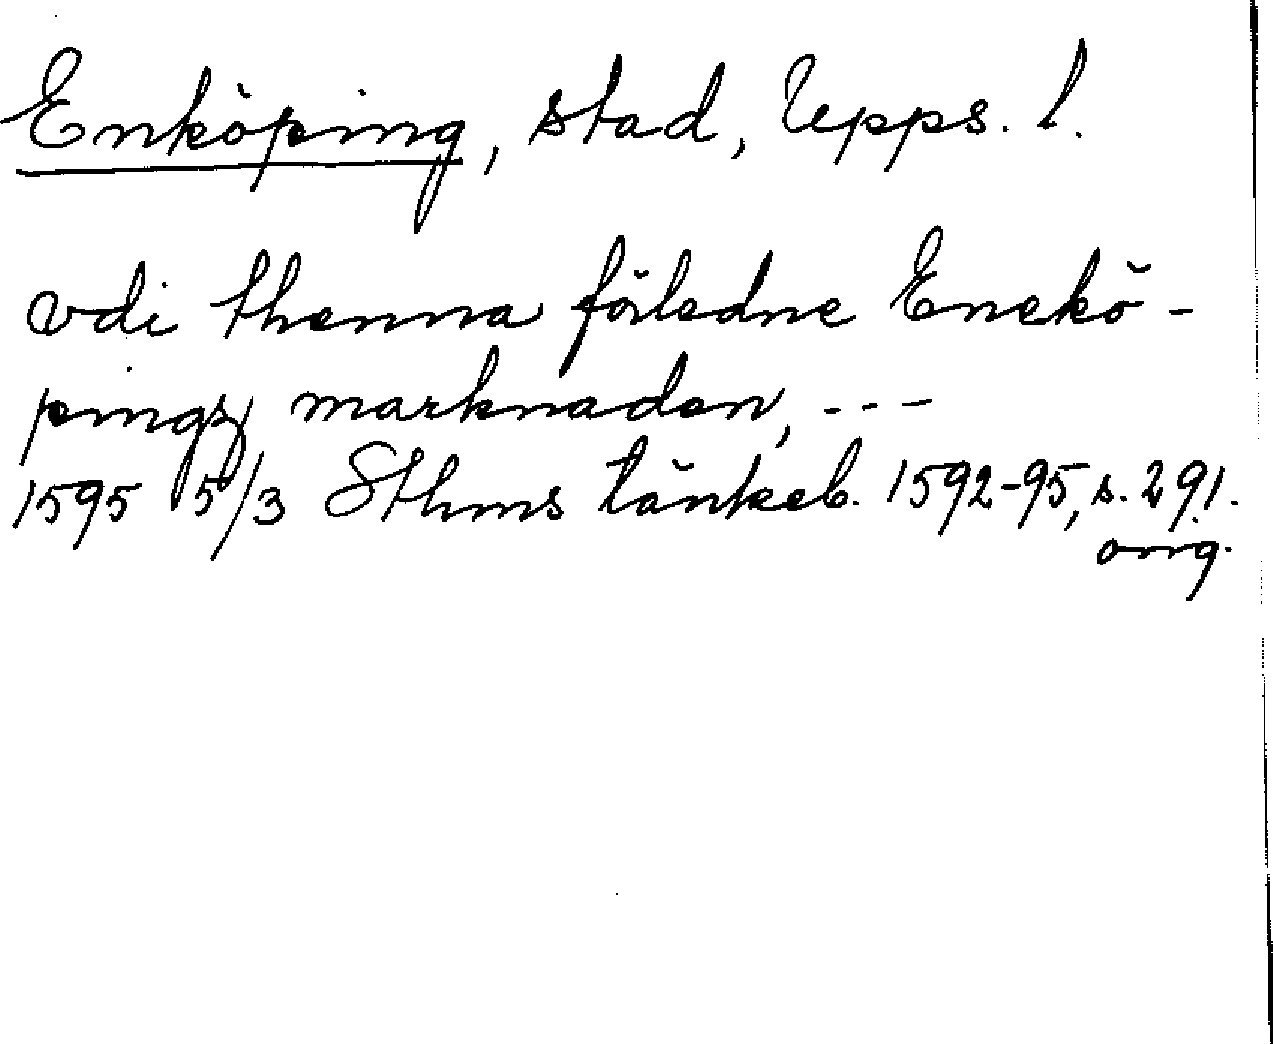 Enköping, stad, Upps. l.
vdi thenna förledne Enekö-
pingz marknaden, ---
1595 5/3 Sthms tänkeb. 1592-95, s. 291.
orig.